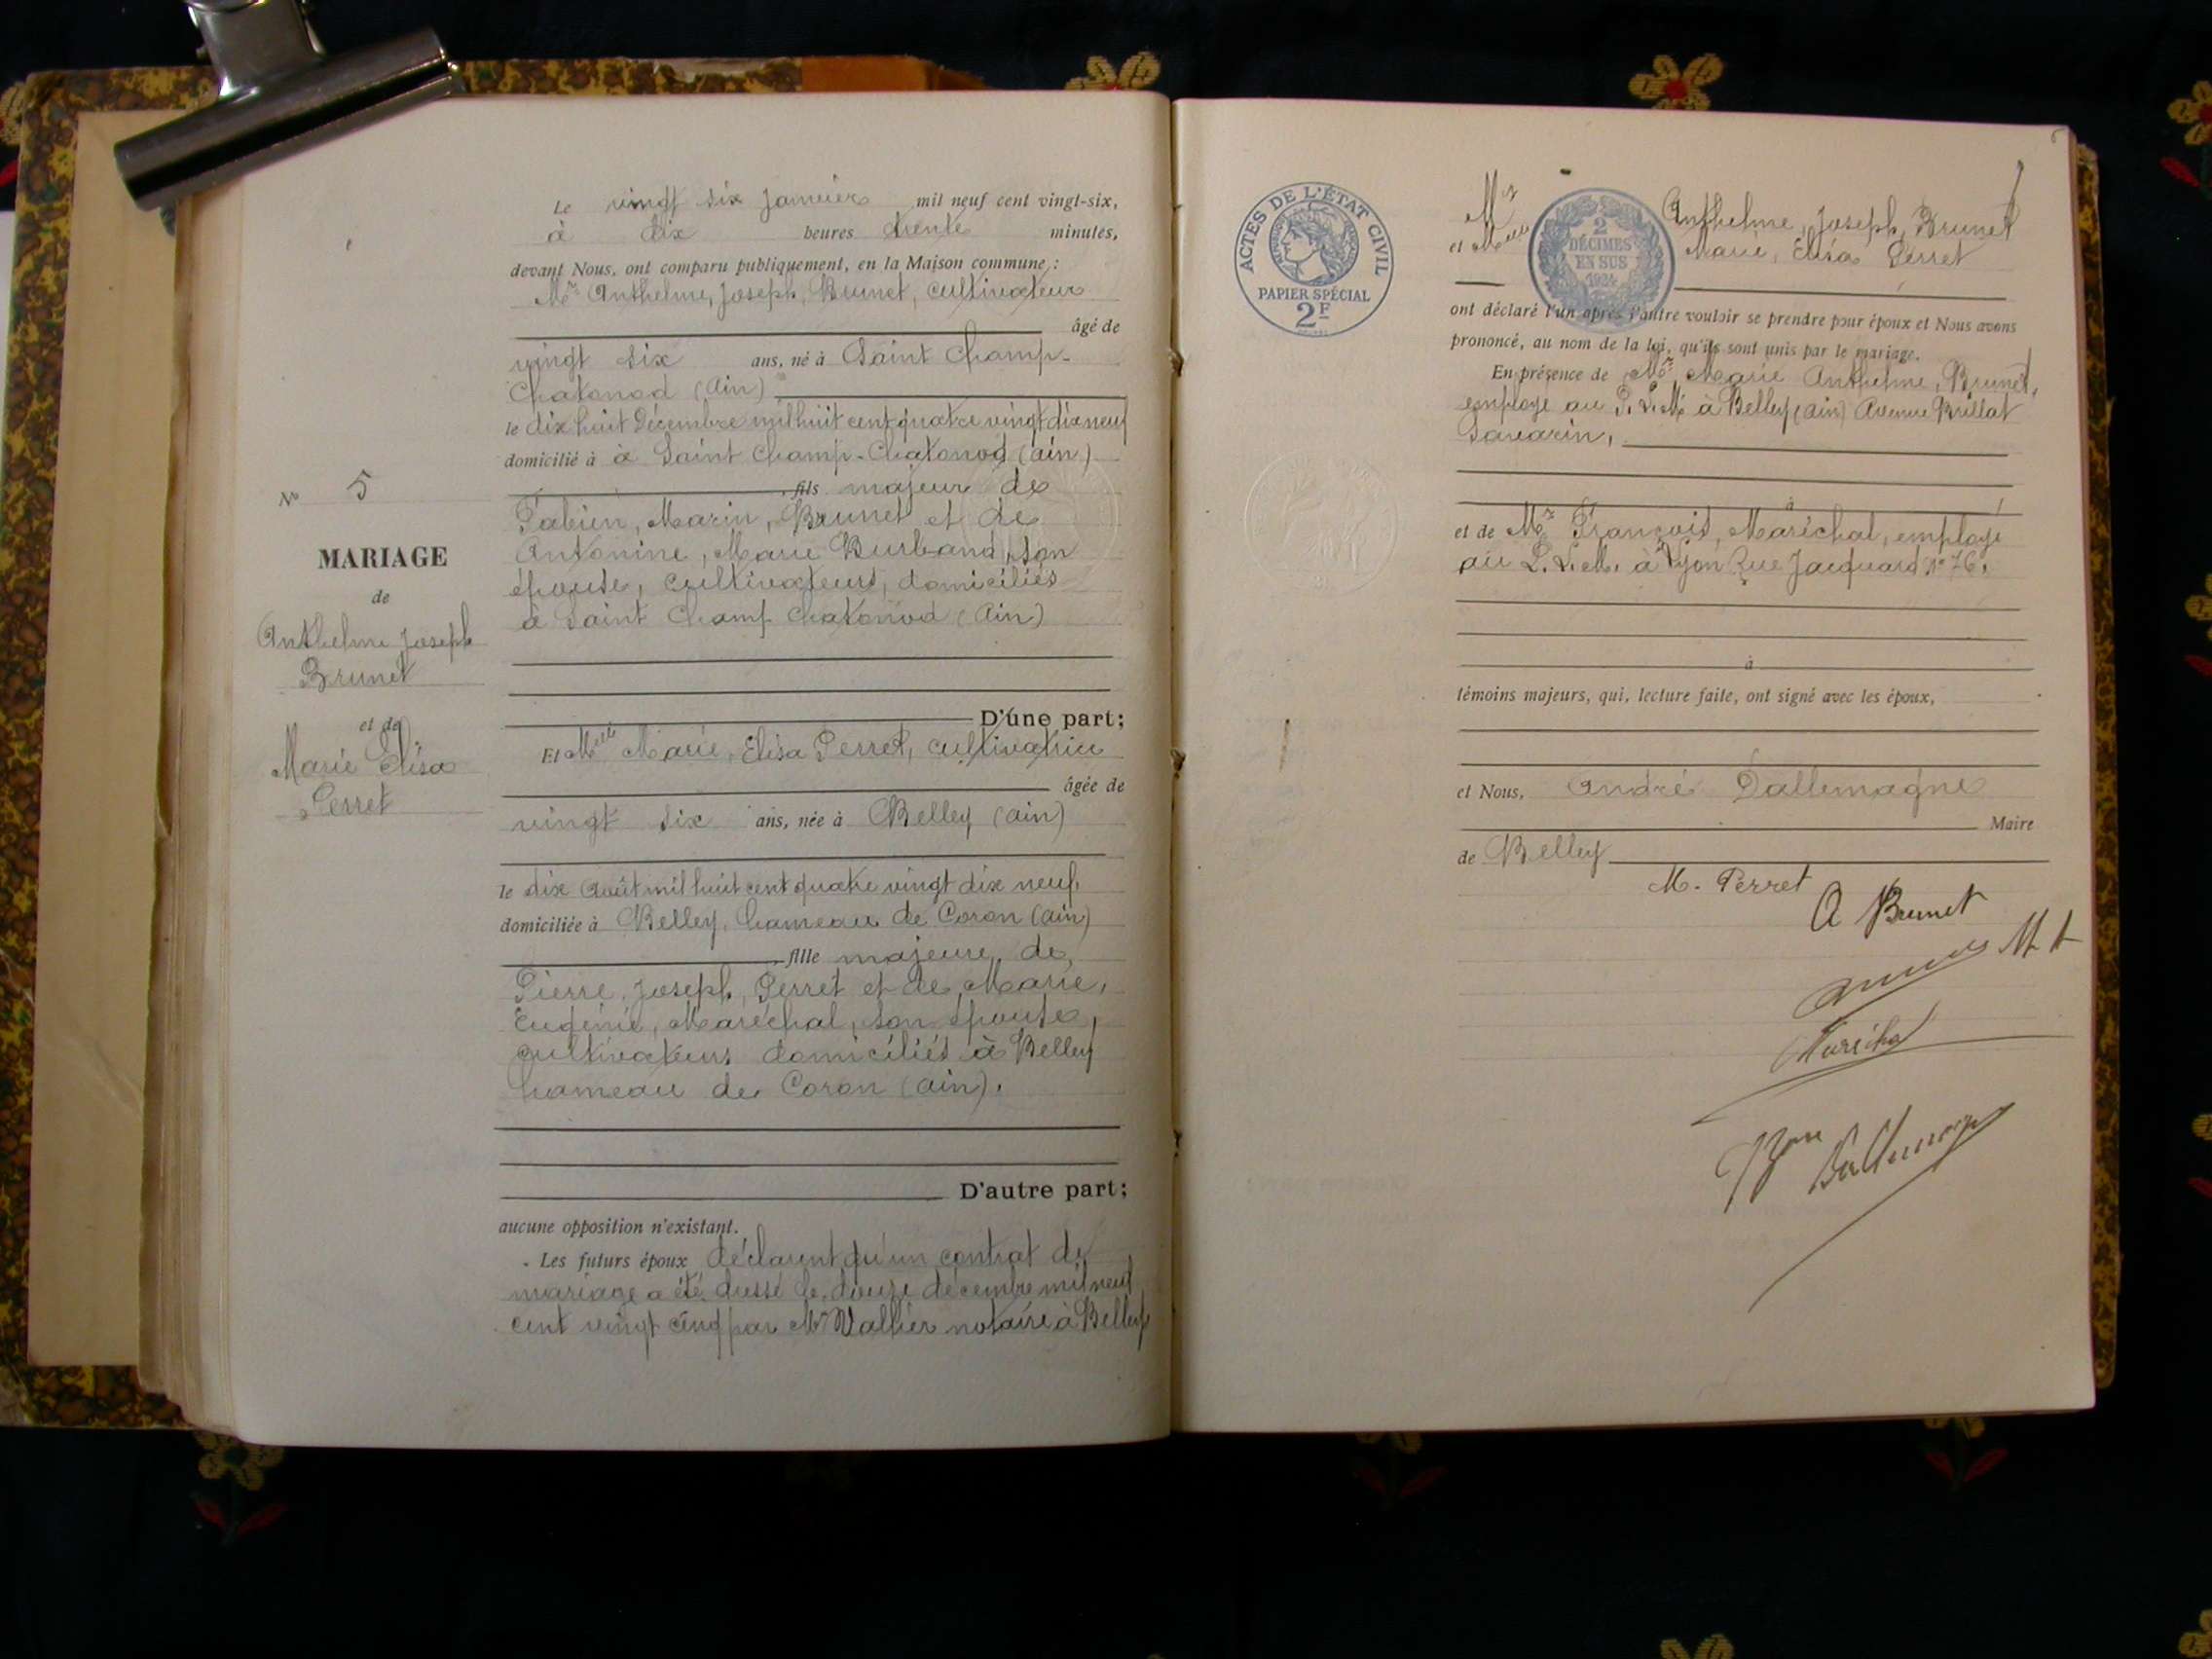 Le vingt six janvier mil neuf cent vingt-six,
à dix heures trente minutes,
devant Nous, ont comparu publiquement, en la Maison commune :
Mr Anthelme, Joseph, Brunet, cultivateur
âgé de
vingt six ans, né à Saint Champ-
Chatonod (Ain)
le dix huit Décembre mil huit cent quatre vingt dix neuf
domicilié à à Saint Champ-Chatonod (Ain)
fils majeur de
Fabien, Marin, Brunet et de
Antonine, Marie Burband, son
épouse, cultivateurs, domiciliés
à Saint Champ Chatonod (Ain)
D'une part;
Et Melle Marie, Elisa Perret, cultivatrice
âgée de
vingt six ans, née à Belley (Ain)
le dix Août mil huit cent quatre vingt dix neuf,
domiciliée à Belley, hameau de Coron (Ain)
fille majeure de
Pierre, Joseph, Perret et de Marie,
Eugénie, Maréchal, son épouse,
cultivateurs domiciliés à Belley
hameau de Coron (Ain).
D'autre part;
aucune opposition n'existant.
Les futurs époux déclarent qu'un contrat de
mariage a été dressé le douze décembre mil neuf
cent vingt cinq par Me Vallier notaire à Belley
No 5
MARIAGE
de
Anthelme Joseph
Brunet
et de
Marie Elisa
Perret
ACTES DE L'ÉTAT CIVIL
PAPIER SPÉCIAL
2F
2
DÉCIMES
EN SUS
1924
Mr Anthelme, Joseph, Brunet
et Melle Marie, Elisa Perret
ont déclaré l'un après l'autre vouloir se prendre pour époux et Nous avons
prononcé, au nom de la loi, qu'ils sont unis par le mariage.
En présence de Mr Marie Anthelme, Brunet,
employé au P.L.M. à Belley (Ain) Avenue Brillat
Savarin,
à
et de Mr François, Maréchal, employé
au P.L.M. à Lyon Rue Jacquard No 76,
à
témoins majeurs, qui, lecture faite, ont signé avec les époux,
et Nous, André Dallemagne
Maire
de Belley
M. Perret
A Brunet
Maréchal
Dallemagne